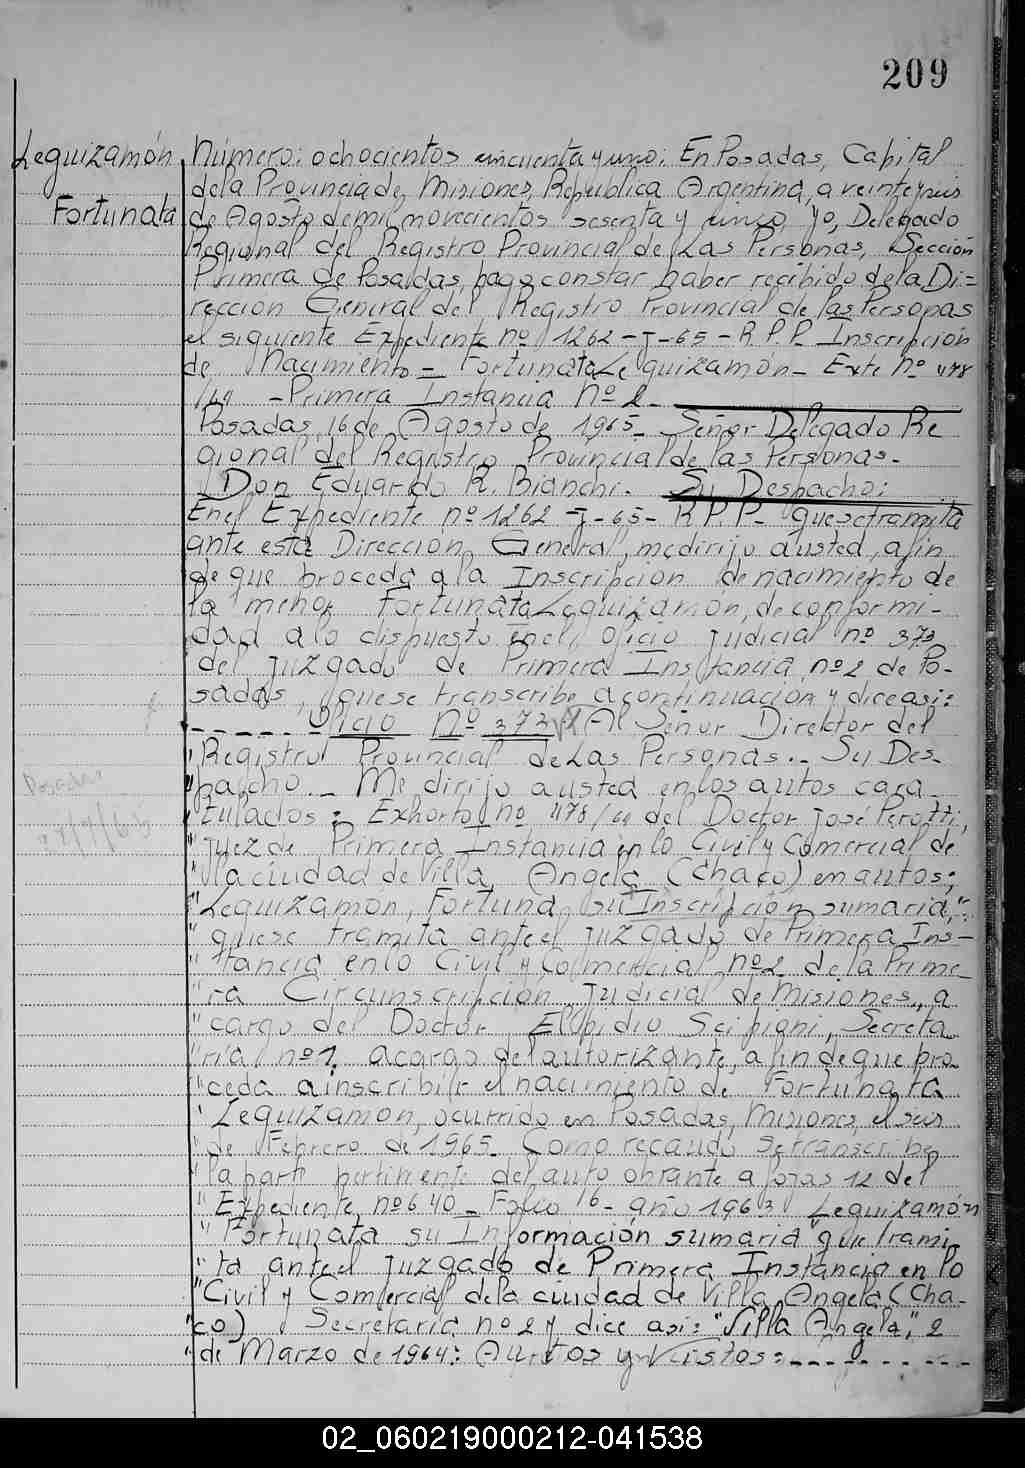 209
Leguizamón
Fortunata
Número: ochocientos cincuenta y uno: En Posadas, Capital
de la Provincia de Misiones, República Argentina, a veinteyseis
de Agosto de mil novecientos sesenta y cinco, Yo, Delegado
Regional del Registro Provincial de Las Personas, Sección
Primera de Posadas, hago constar haber recibido de la Di=
rección General del Registro Provincial de las Personas
el siguiente Expediente nº 1262-J-65-R.P.P. Inscripción
de Nacimiento - Fortunata Leguizamón - Exte Nº 478
- Primera Instancia Nº 2.
Posadas, 16 de Agosto de 1965. Señor Delegado Re
gional del Registro Provincial de las Personas.
Don Eduardo R. Bianchi. Su Despacho:
En el Expediente nº 1262-J-65-R.P.P- que se tramita
ante esta Dirección General, me dirijo a usted, a fin
de que proceda a la Inscripción de nacimiento de
la menor Fortunata Leguizamón, de conformi-
dad a lo dispuesto en el oficio judicial nº 373
del Juzgado de Primera Instancia nº 2 de Po-
sadas, que se transcribe a continuación y dice así:
------ Oficio Nº 373 Al Señor Director del
"Registro Provincial de Las Personas.- Su Des-
"pacho.- Me dirijo a usted en los autos cara
"tulados: Exhorto nº 478/64 del Doctor José Perotti,
"Juez de Primera Instancia en lo Civil y Comercial de
"la ciudad de Villa Angela (Chaco) en autos:
"Leguizamón, Fortuna su Inscripción sumaria,"
"que se tramita ante el Juzgado de Primera Ins-
"tancia en lo Civil y Comercial nº 2 de la Prime-
"ra Circunscripción Judicial de Misiones, a
"cargo del Doctor Elpidio Scipigni, Secreta
"ría nº 1, a cargo del autorizante, a fin de que pro-
"ceda a inscribir el nacimiento de Fortunata
"Leguizamon, ocurrido en Posadas, Misiones, el seis
"de Febrero de 1965. Como recaudo se transcribe
"la parte pertinente del auto obrante a fojas 12 del
"Expediente nº 640 - Folio 16 - año 1963 Leguizamón
"Fortunata su Información sumaria" que trami
"ta ante el Juzgado de Primera Instancia en lo
"Civil y Comercial de la ciudad de Villa Angela (Cha-
"co) Secretaria nº 2 y dice así: "Villa Angela," 2
"de Marzo de 1964: Autos y Vistos: ---------
Posadas
02_060219000212-041538